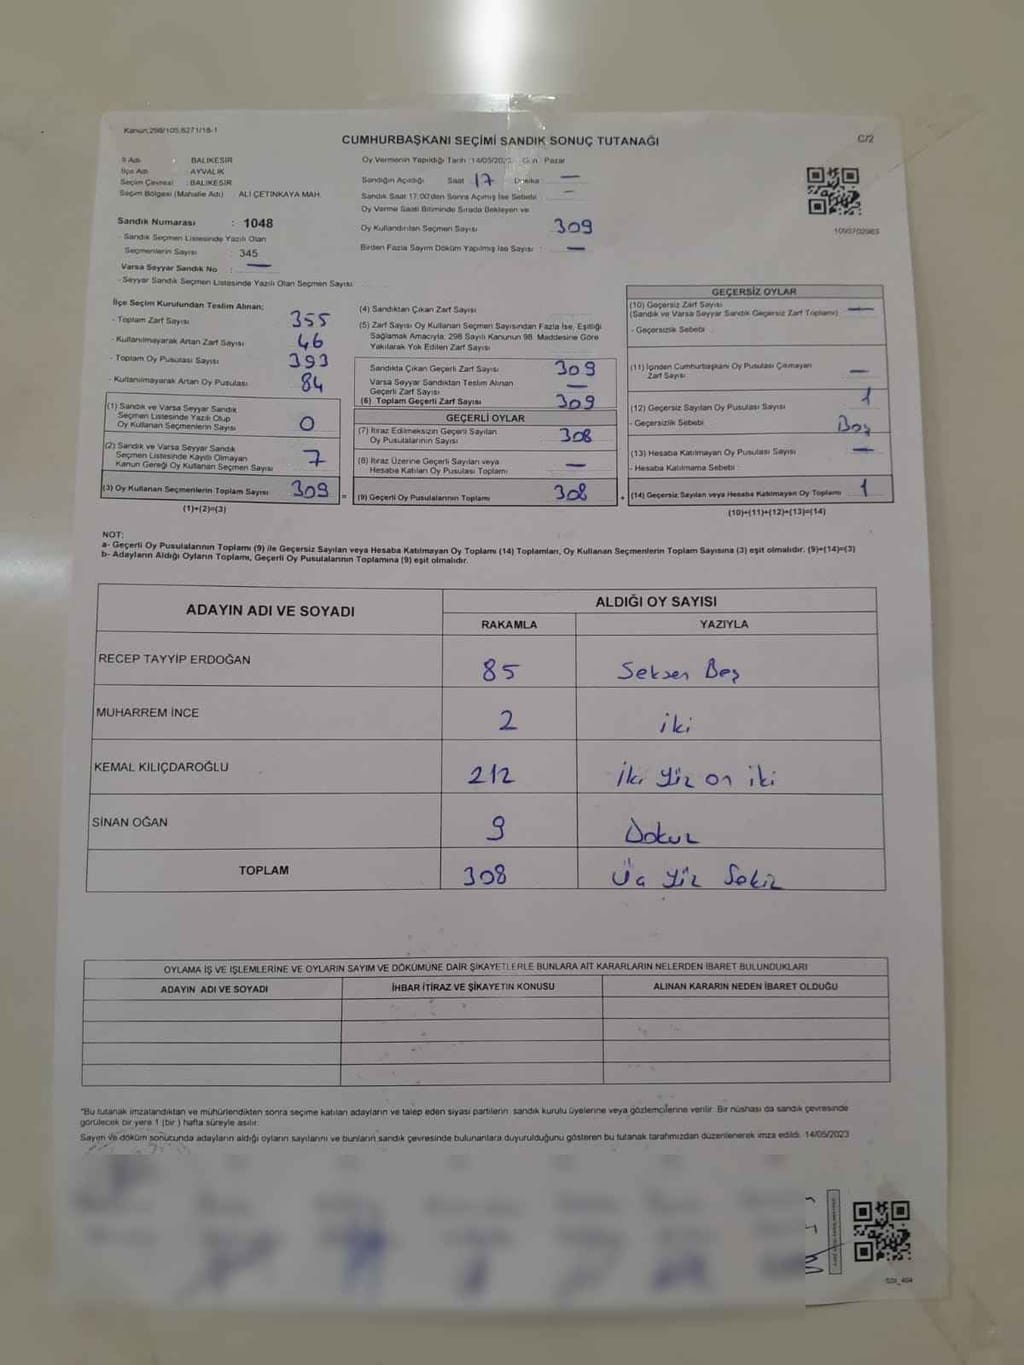 Kanun:298/105,6271/18-1
CUMHURBAŞKANI SEÇİMİ SANDIK SONUÇ TUTANAĞI
C/2
İl Adı : BALIKESİR
İlçe Adı : AYVALIK
Seçim Çevresi : BALIKESİR
Seçim Bölgesi (Mahalle Adı) ALİ ÇETİNKAYA MAH.
Sandık Numarası : 1048
- Sandık Seçmen Listesinde Yazılı Olan
Seçmenlerin Sayısı : 345
Varsa Seyyar Sandık No : —
- Seyyar Sandık Seçmen Listesinde Yazılı Olan Seçmen Sayısı
Oy Vermenin Yapıldığı Tarih : 14/05/2023 Gün : Pazar
Sandığın Açıldığı Saat 17 Dakika —
Sandık Saat 17:00'den Sonra Açımış İse Sebebi —
Oy Verme Saati Bitiminde Sırada Bekleyen ve —
Oy Kullandırılan Seçmen Sayısı 309
Birden Fazla Sayım Döküm Yapılmış İse Sayısı : —
İlçe Seçim Kurulundan Teslim Alınan:
- Toplam Zarf Sayısı 355
- Kullanılmayarak Artan Zarf Sayısı 46
- Toplam Oy Pusulası Sayısı 393
- Kullanılmayarak Artan Oy Pusulası 84
(1) Sandık ve Varsa Seyyar Sandık
Seçmen Listesinde Yazılı Olup
Oy Kullanan Seçmenlerin Sayısı 0
(2) Sandık ve Varsa Seyyar Sandık
Seçmen Listesinde Kayıtlı Olmayan
Kanun Gereği Oy Kullanan Seçmen Sayısı 7
(3) Oy Kullanan Seçmenlerin Toplam Sayısı 309 =
(1)+(2)=(3)
(4) Sandıktan Çıkan Zarf Sayısı
(5) Zarf Sayısı Oy Kullanan Seçmen Sayısından Fazla İse, Eşitliği
Sağlamak Amacıyla; 298 Sayılı Kanunun 98. Maddesine Göre
Yakılarak Yok Edilen Zarf Sayısı
Sandıkta Çıkan Geçerli Zarf Sayısı 309
Varsa Seyyar Sandıktan Teslim Alınan
Geçerli Zarf Sayısı —
(6) Toplam Geçerli Zarf Sayısı 309
GEÇERLİ OYLAR
(7) İtiraz Edilmeksizin Geçerli Sayılan
Oy Pusulalarının Sayısı 308
(8) İtiraz Üzerine Geçerli Sayılan veya
Hesaba Katılan Oy Pusulası Toplamı —
(9) Geçerli Oy Pusulalarının Toplamı 308 +
GEÇERSİZ OYLAR
(10) Geçersiz Zarf Sayısı
(Sandık ve Varsa Seyyar Sandık Geçersiz Zarf Toplamı) —
- Geçersizlik Sebebi
(11) İçinden Cumhurbaşkanı Oy Pusulası Çıkmayan
Zarf Sayısı —
(12) Geçersiz Sayılan Oy Pusulası Sayısı 1
- Geçersizlik Sebebi Boş
(13) Hesaba Katılmayan Oy Pusulası Sayısı —
- Hesaba Katılmama Sebebi
(14) Geçersiz Sayılan veya Hesaba Katılmayan Oy Toplamı 1
(10)+(11)+(12)+(13)=(14)
NOT:
a- Geçerli Oy Pusulalarının Toplamı (9) ile Geçersiz Sayılan veya Hesaba Katılmayan Oy Toplamı (14) Toplamları, Oy Kullanan Seçmenlerin Toplam Sayısına (3) eşit olmalıdır. (9)+(14)=(3)
b- Adayların Aldığı Oyların Toplamı, Geçerli Oy Pusulalarının Toplamına (9) eşit olmalıdır.
ADAYIN ADI VE SOYADI
ALDIĞI OY SAYISI
RAKAMLA YAZIYLA
RECEP TAYYİP ERDOĞAN 85 Seksen Beş
MUHARREM İNCE 2 iki
KEMAL KILIÇDAROĞLU 212 İki yüz on iki
SİNAN OĞAN 9 Dokuz
TOPLAM 308 Üç yüz Sekiz
OYLAMA İŞ VE İŞLEMLERİNE VE OYLARIN SAYIM VE DÖKÜMÜNE DAİR ŞİKAYETLERLE BUNLARA AİT KARARLARIN NELERDEN İBARET BULUNDUKLARI
ADAYIN ADI VE SOYADI İHBAR İTİRAZ VE ŞİKAYETİN KONUSU ALINAN KARARIN NEDEN İBARET OLDUĞU
*Bu tutanak imzalandıktan ve mühürlendikten sonra seçime katılan adayların ve talep eden siyasi partilerin sandık kurulu üyelerine veya gözlemcilerine verilir. Bir nüshası da sandık çevresinde
görülecek bir yere 1 (bir) hafta süreyle asılır.
Sayım ve döküm sonucunda adayların aldığı oyların sayılarını ve bunların sandık çevresinde bulunanlara duyurulduğunu gösteren bu tutanak tarafımızdan düzenlenerek imza edildi. 14/05/2023